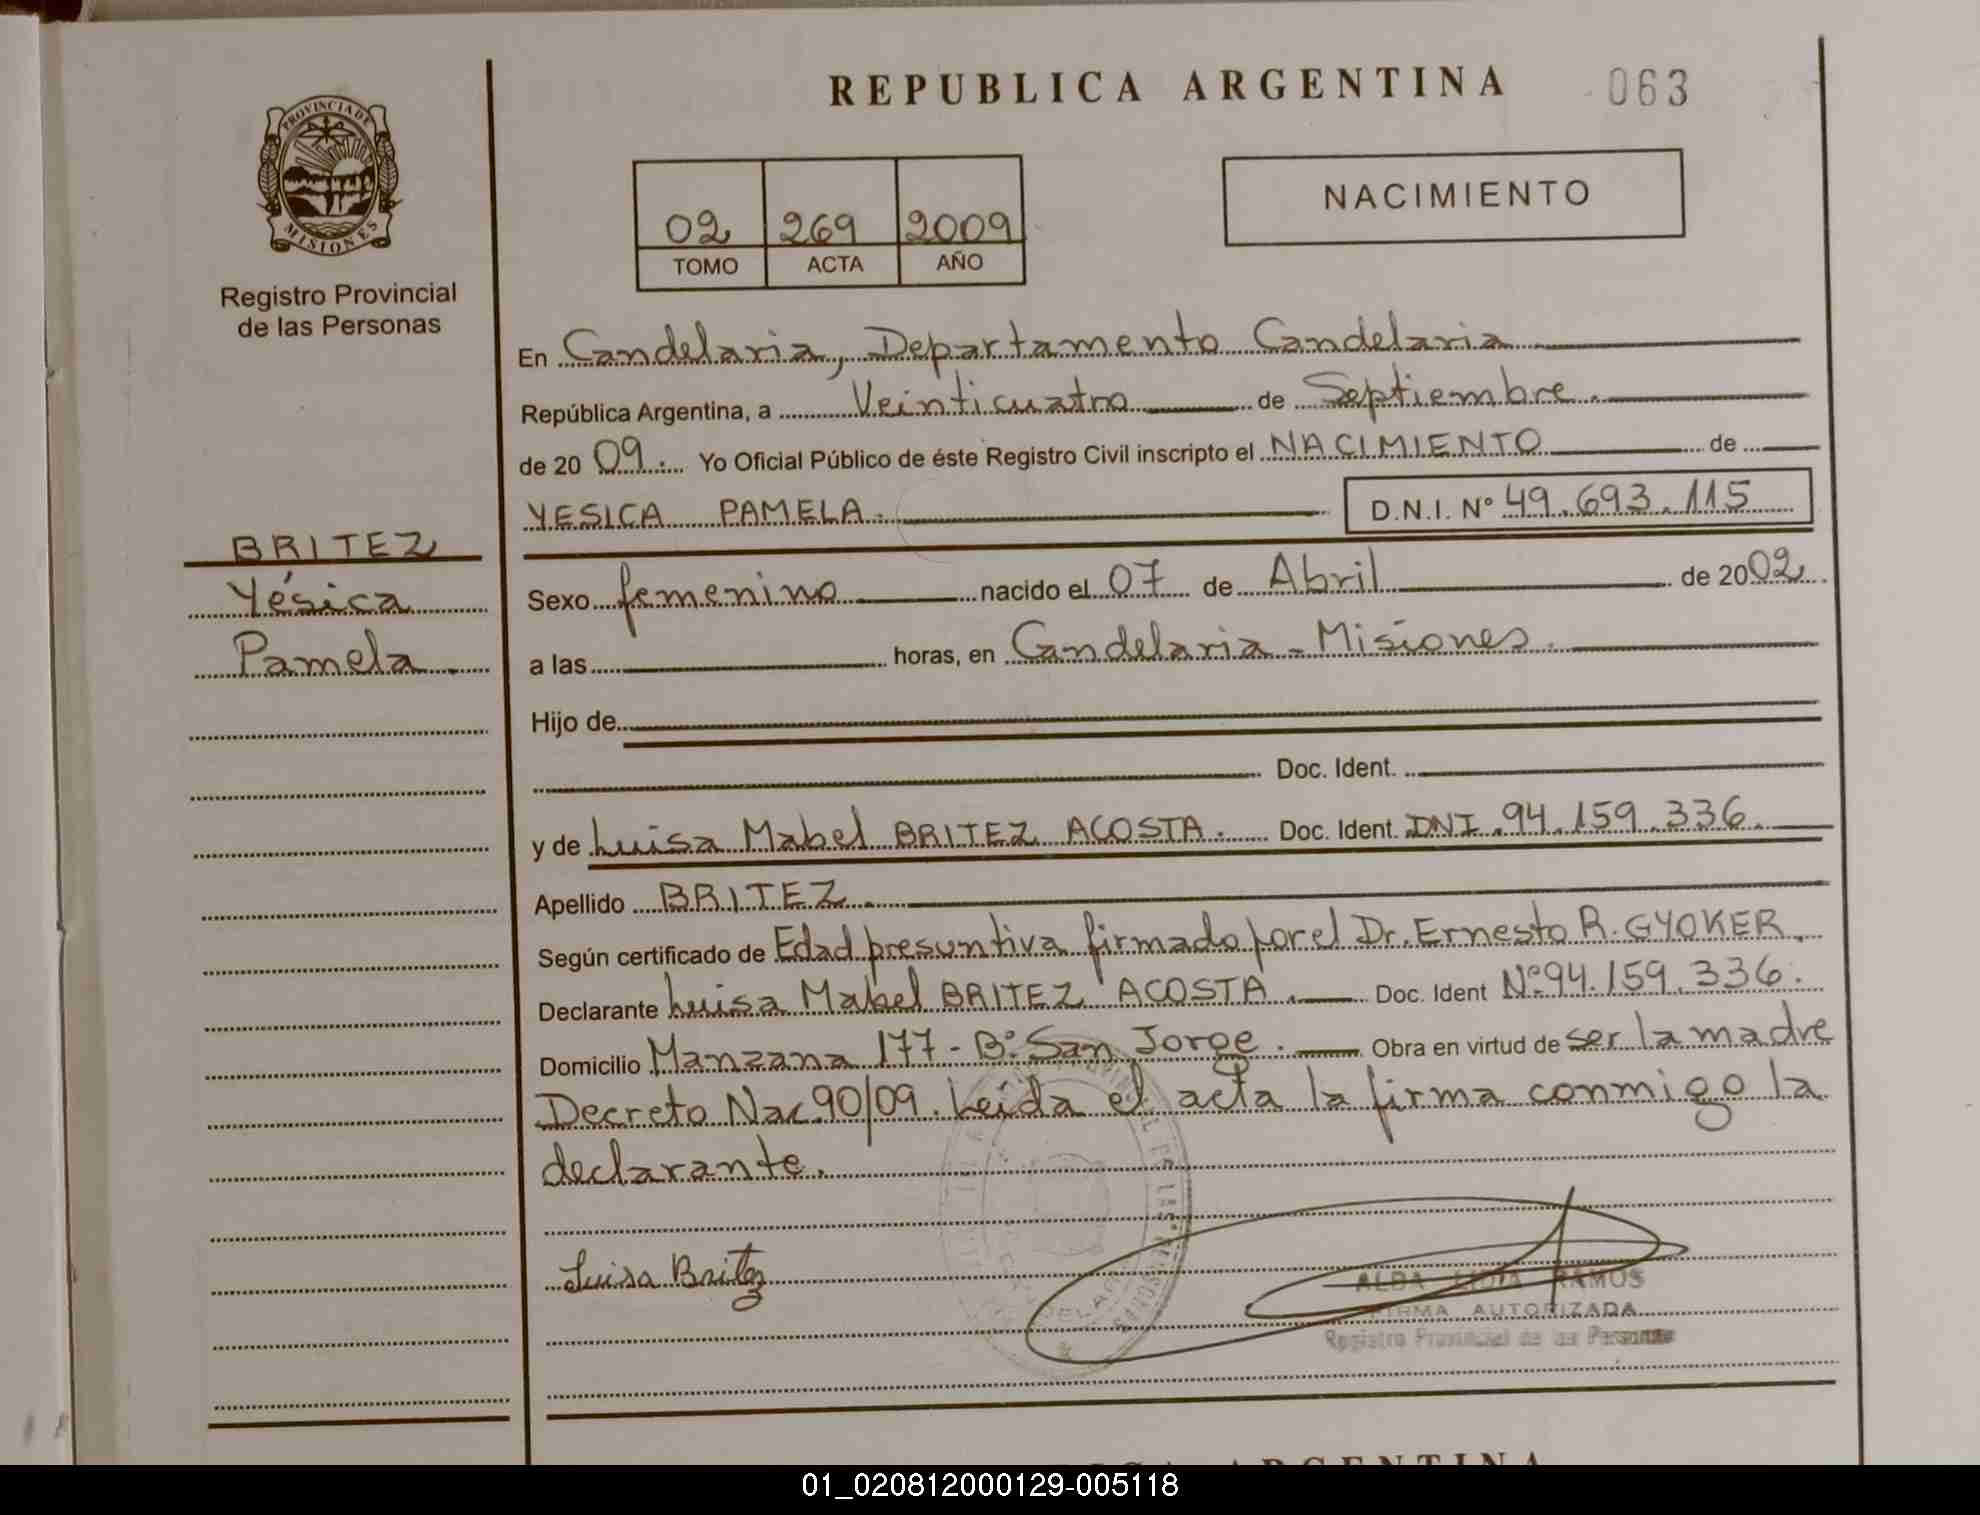 REPUBLICA ARGENTINA 063
PROVINCIA DE
MISIONES
Registro Provincial
de las Personas
02 269 2009
TOMO ACTA AÑO
NACIMIENTO
BRITEZ
Yésica
Pamela.
En Candelaria, Departamento Candelaria
República Argentina, a Veinticuatro de Septiembre.
de 2009. Yo Oficial Público de éste Registro Civil inscripto el NACIMIENTO de
YESICA PAMELA. D.N.I. Nº 49.693.115
Sexo femenino nacido el 07 de Abril de 2002
a las horas, en Candelaria - Misiones.
Hijo de
Doc. Ident.
y de Luisa Mabel BRITEZ ACOSTA. Doc. Ident. DNI. 94.159.336.
Apellido BRITEZ.
Según certificado de Edad presuntiva firmado por el Dr. Ernesto R. GYOKER.
Declarante Luisa Mabel BRITEZ ACOSTA. Doc. Ident Nº 94.159.336.
Domicilio Manzana 177 - Bº San Jorge. Obra en virtud de ser la madre
Decreto Nac 90/09. Leída el acta la firma conmigo la
declarante.
Luisa Britez
ALDA LIDIA RAMOS
FIRMA AUTORIZADA
Registro Provincial de las Personas
ARGENTINA
01_020812000129-005118